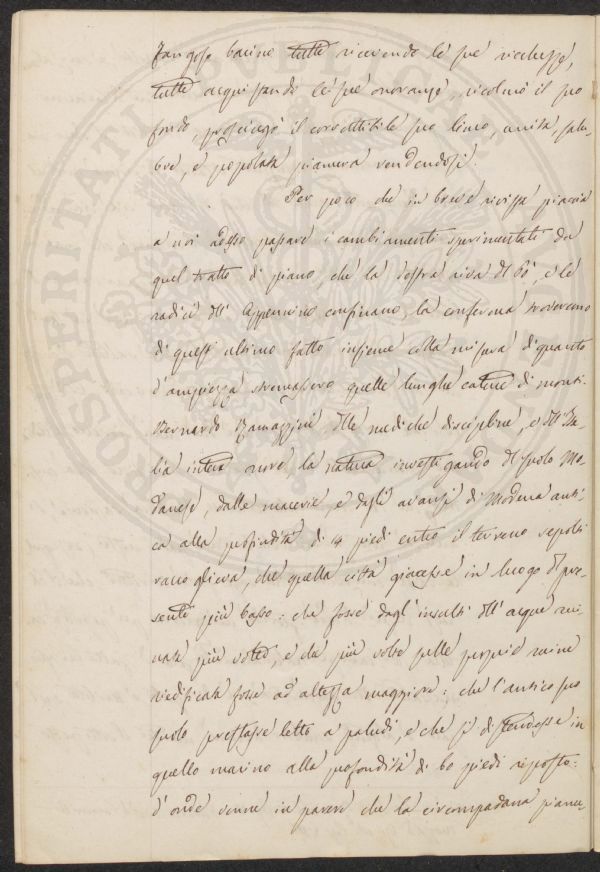 fangoso bacino tutte ricevendo le sue ricchezze,
tutte acquistando le sue onoranze, ricolmò il suo
fondo, prosciugò il corruttibile suo limo, amena, salu-
bre, e popolata pianura rendendosi.
Per poco che in breve rivista piaccia
a noi adesso passare i cambiamenti sperimentati da
quel tratto di piano, che la destra riva del Pò, e le
radici dell' Appennino confinano, la conferma troveremo
di quest' ultimo fatto insieme colla misura di quanto
d'ampiezza scemassero quelle lunghe catene di monti.
Bernardo Ramazzini delle mediche discipline, e dell' Ita-
lia intera onore, la natura investigando del suolo Mo-
danese, dalle macerie, e dagli avanzi di Modena anti-
ca alla profondità di 14 piedi entro il terreno sepolti
raccoglieva, che quella città giacesse in luogo del pre-
sente più basso: che fosse dagl' insulti dell' acque rui-
nata più volte, e da più volte sulle proprie ruine
riedificata fosse ad altezza maggiore: che l'antico suo
suolo prestasse letto a paludi, e che si distendesse in
quello marino alla profondità di 60 piedi riposto:
d'onde venne in parere che la circompadana pianu-
PROSPERITATI PUBLICAE